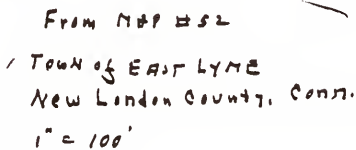 From MAP #52
Town of EAST LYME
New London County, Conn.
1" = 100'